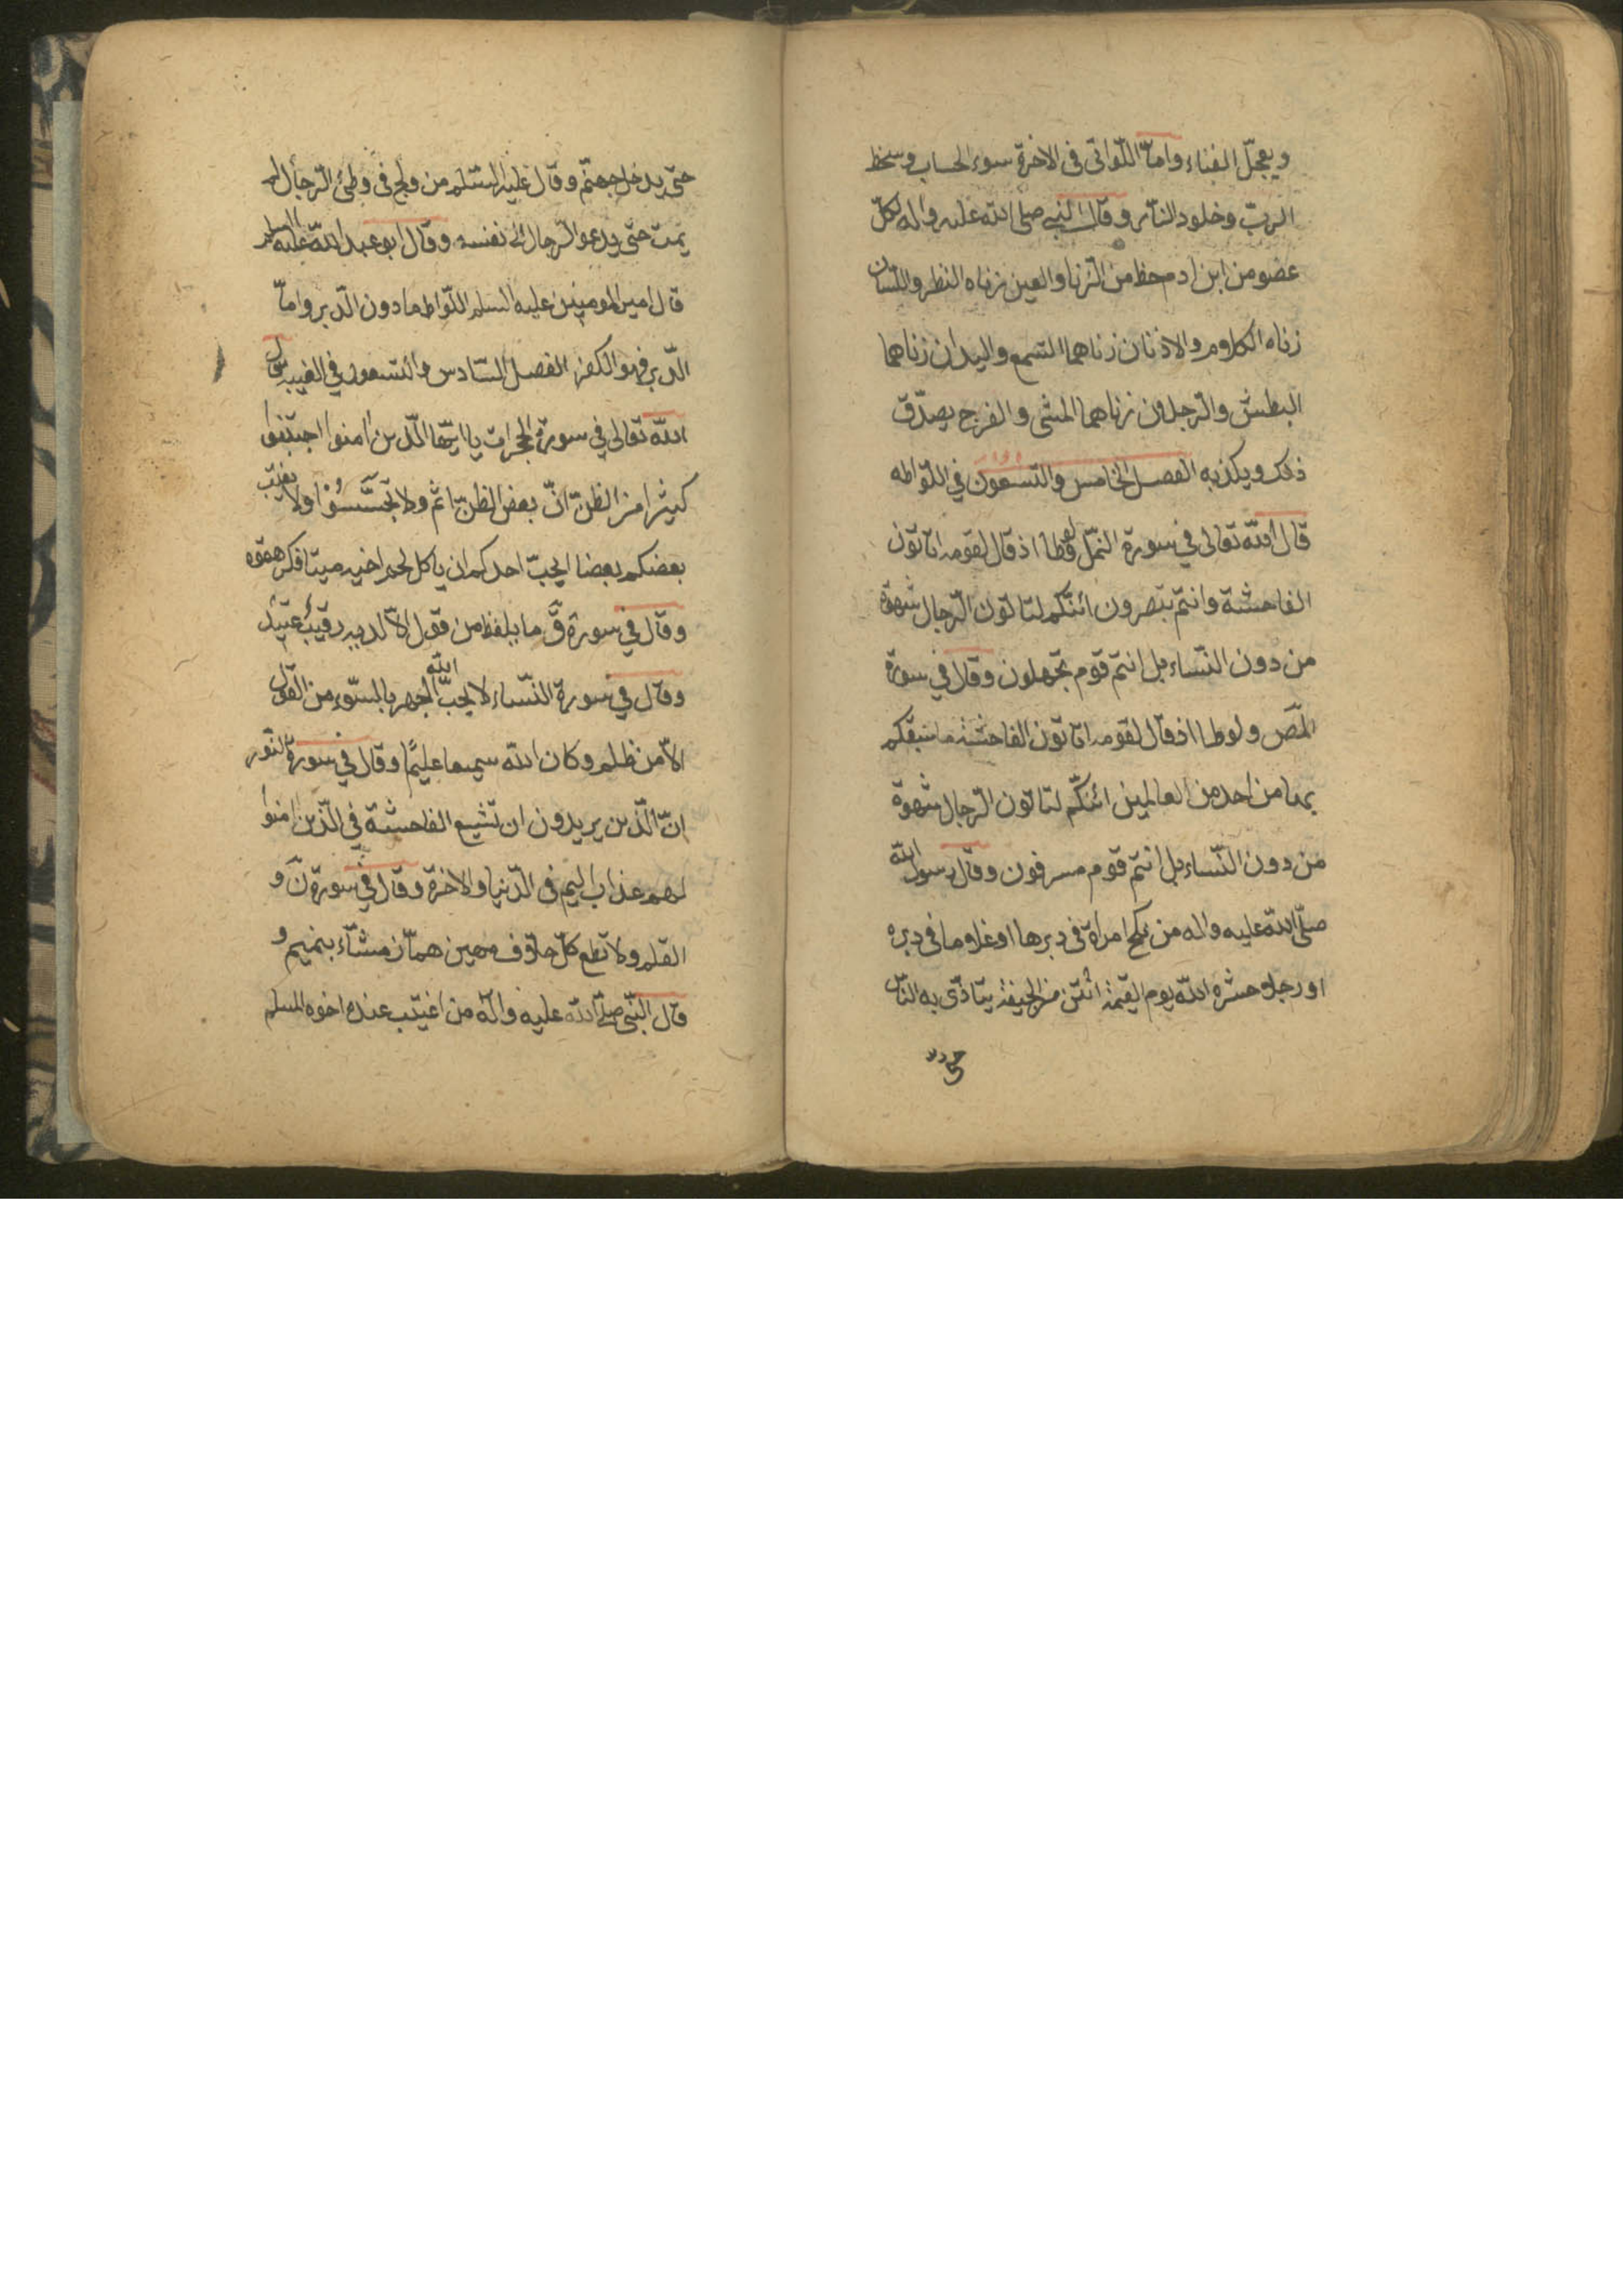 ويعجّل الفناء وامّا اللّواتى فى الاخرة سوء الحساب وسخط
الربّ وخلود النّار وقال النبي صلى الله عليه واله لكلّ
عضو من ابن ادم حظ من الزّنا والعين زناه النظر واللّسان
زناه الكلام والاذنان زناهما السّمع واليدان زناهما
البطش والرّجلان زناهما المشى والفرج يصدّق
ذلك ويكذبه الفصل الخامس والتّسعون في اللّواطه
قال الله تعالى في سورة النمّل ولوطا اذ قال لقومه اتاتون
الفاحشة وانتم تبصرون ائنّكم لتاتون الرّجال شهوة
من دون النّساء بل انتم قوم تجهلون وقال في سورة
المص ولوطا اذ قال لقومه اتاتون الفاحشة ما سبقكم
بها من احد من العالمين ائنكّم لتاتون الرّجال شهوة
من دون النّساء بل انتم قوم مسرفون وقال رسول الله
صلّى الله عليه واله من نكح امراة فى دبرها او غلاما فى دبره
او رجلا حشره الله يوم القيمة انتن من الجيفة يتاذّى به النّاس
حتى يد
حتّى يدخل جهنّم وقال عليه السّلم من ولج فى وطئ الرّجال لم
يمت حتى يدعو الرّجال الى نفسه وقال ابو عبد الله عليه السلم
قال امير المومنين عليه السلم اللّواط ما دون الدّبر وامّا
الدّبر فهو الكفر الفصل السّادس والتسعون في الغيبة قال
الله تعالى في سورة الحجرات يا ايّها الّذين امنوا اجتنبوا
كثيرا من الظنّ انّ بعض الظنّ اثم ولا تجسّسوا ولا يغتب
بعضكم بعضا ايحبّ احدكم ان ياكل لحم اخيه ميتا فكرهتموه
وقال في سورة ق ما يلفظ من قول الاّ لديه رقيب عتيد
وقال في سورة النّساء لا يحبّ الله الجهر بالسّوء من القول
الاّ من ظلم وكان الله سميعا عليمًا وقال في سورة النّور
انّ الّذين يريدون ان تشيع الفاحشة في الّذين امنوا
لهم عذاب اليم فى الدّنيا والاخرة وقال في سورة ن و
القلم ولا تطع كلّ حلاّف مهين همّاز مشّاء بنميم و
قال النّبى صلى الله عليه واله من اغتيب عنده اخوه المسلم